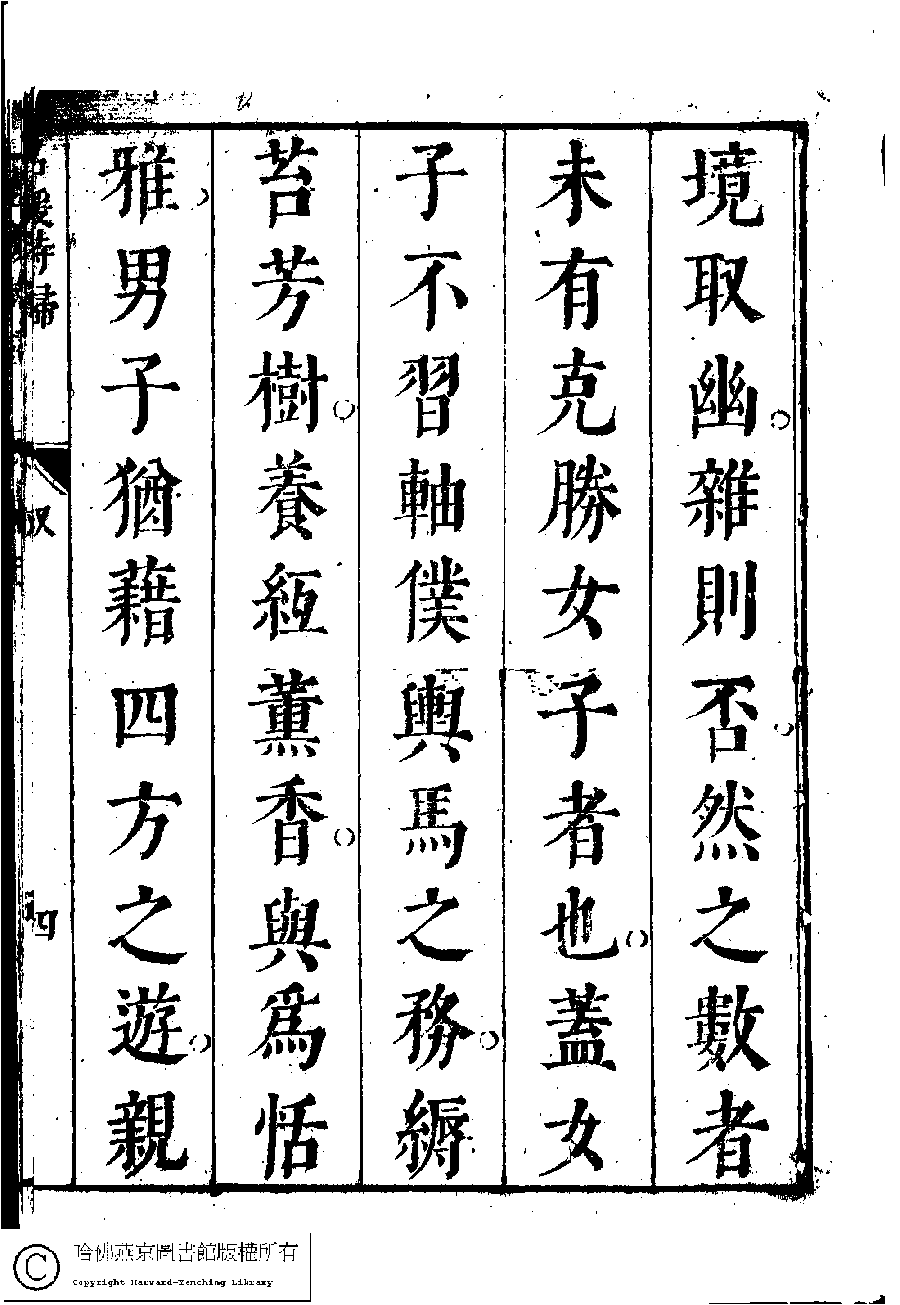 境取幽雜則否然之數者
未有克勝女子者也蓋女
子不習軸僕輿馬之務縟
苔芳樹養絚薰香與爲恬
雅男子猶藉四方之遊親
名媛詩歸
叙
四
哈佛燕京圖書館版權所有
Copyright Harvard-Yenching Library